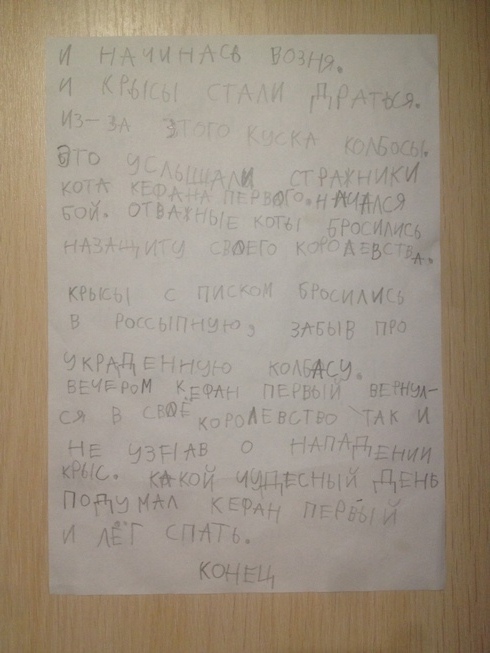 И НАЧИНАСЬ ВОЗНЯ.
И КРЫСЫ СТАЛИ ДРАТЬСЯ.
ИЗ-ЗА ЭТОГО КУСКА КОЛБОСЫ.
ЭТО УСЛЫШАЛИ СТРАЖНИКИ
КОТА КЕФАНА ПЕРВОГО. НАЧАЛСЯ
БОЙ. ОТВАЖНЫЕ КОТЫ БРОСИЛИСЬ
НАЗАЩИТУ СВОЕГО КОРОЛЕВСТВА.
КРЫСЫ С ПИСКОМ БРОСИЛИСЬ
В РОССЫПНУЮ, ЗАБЫВ ПРО
УКРАДЕННУЮ КОЛБАСУ.
ВЕЧЕРОМ КЕФАН ПЕРВЫЙ ВЕРНУЛ-
СЯ В СВОЁ КОРОЛЕВСТВО ТАК И
НЕ УЗНАВ О НАПАДЕНИИ
КРЫС. КАКОЙ ЧУДЕСНЫЙ ДЕНЬ
ПОДУМАЛ КЕФАН ПЕРВЫЙ
И ЛЁГ СПАТЬ.
КОНЕЦ